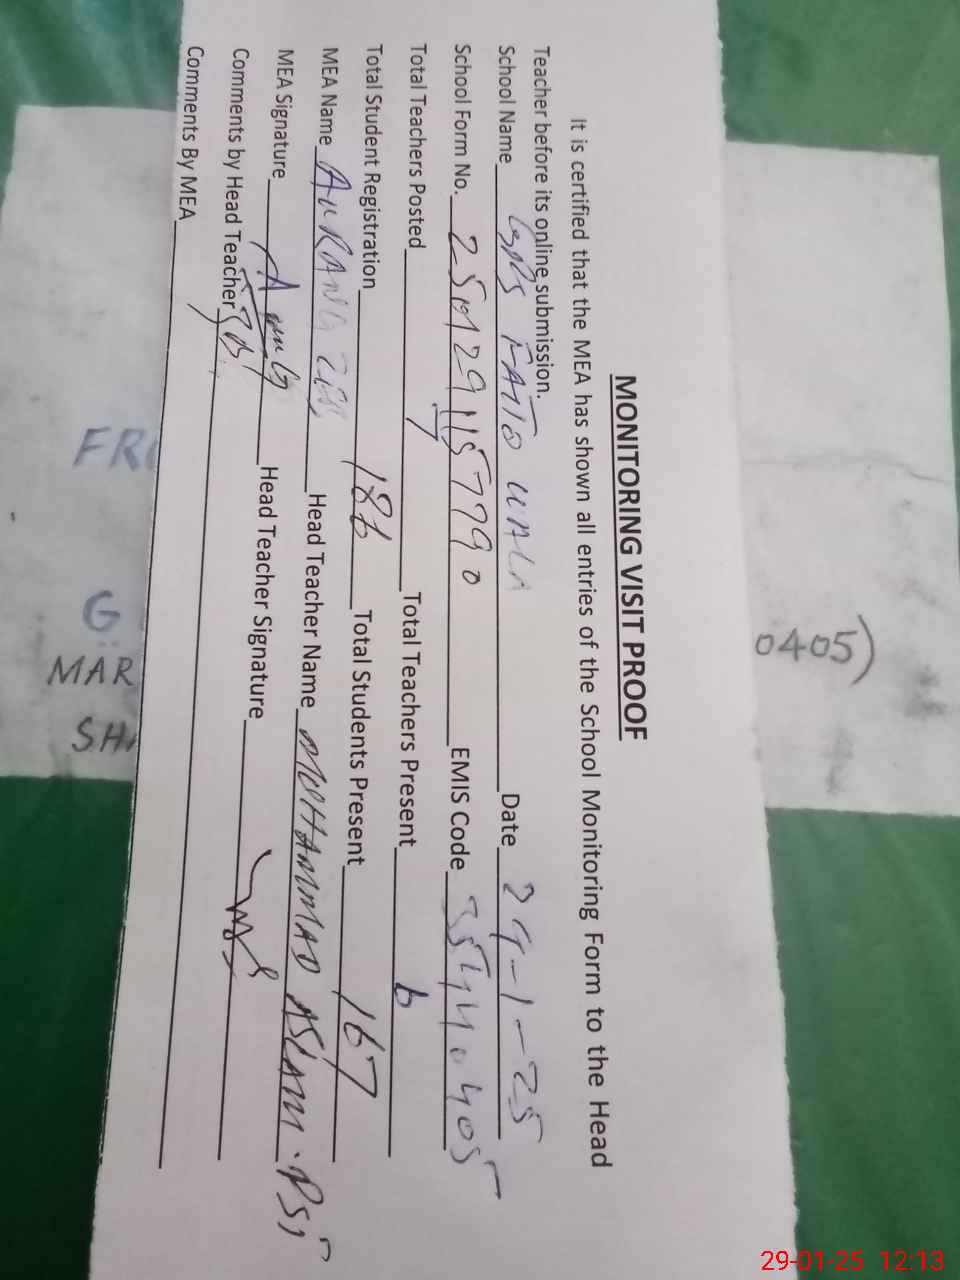 MONITORING VISIT PROOF
It is certified that the MEA has shown all entries of the School Monitoring Form to the Head
Teacher before its online submission.
School Name GPS FATTO WALA Date 29-1-25
School Form No. EMIS Code 35440405
Total Teachers Posted 7 Total Teachers Present 6
Total Student Registration 186 Total Students Present 167
MEA Name AURANG ZEB Head Teacher Name MUHAMMAD ASLAM
MEA Signature Head Teacher Signature
Comments by Head Teacher
Comments By MEA
0405)
FRO
G.
MAR
SHA
29-01-25 12:13